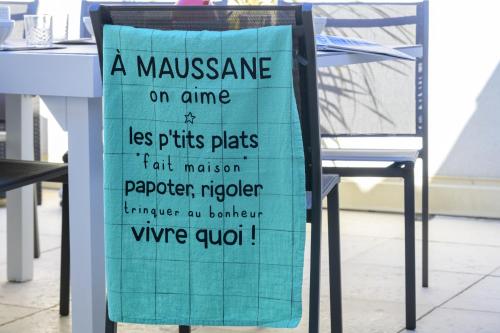 À MAUSSANE
on aime
les p'tits plats
"fait maison"
papoter, rigoler
trinquer au bonheur
vivre quoi !